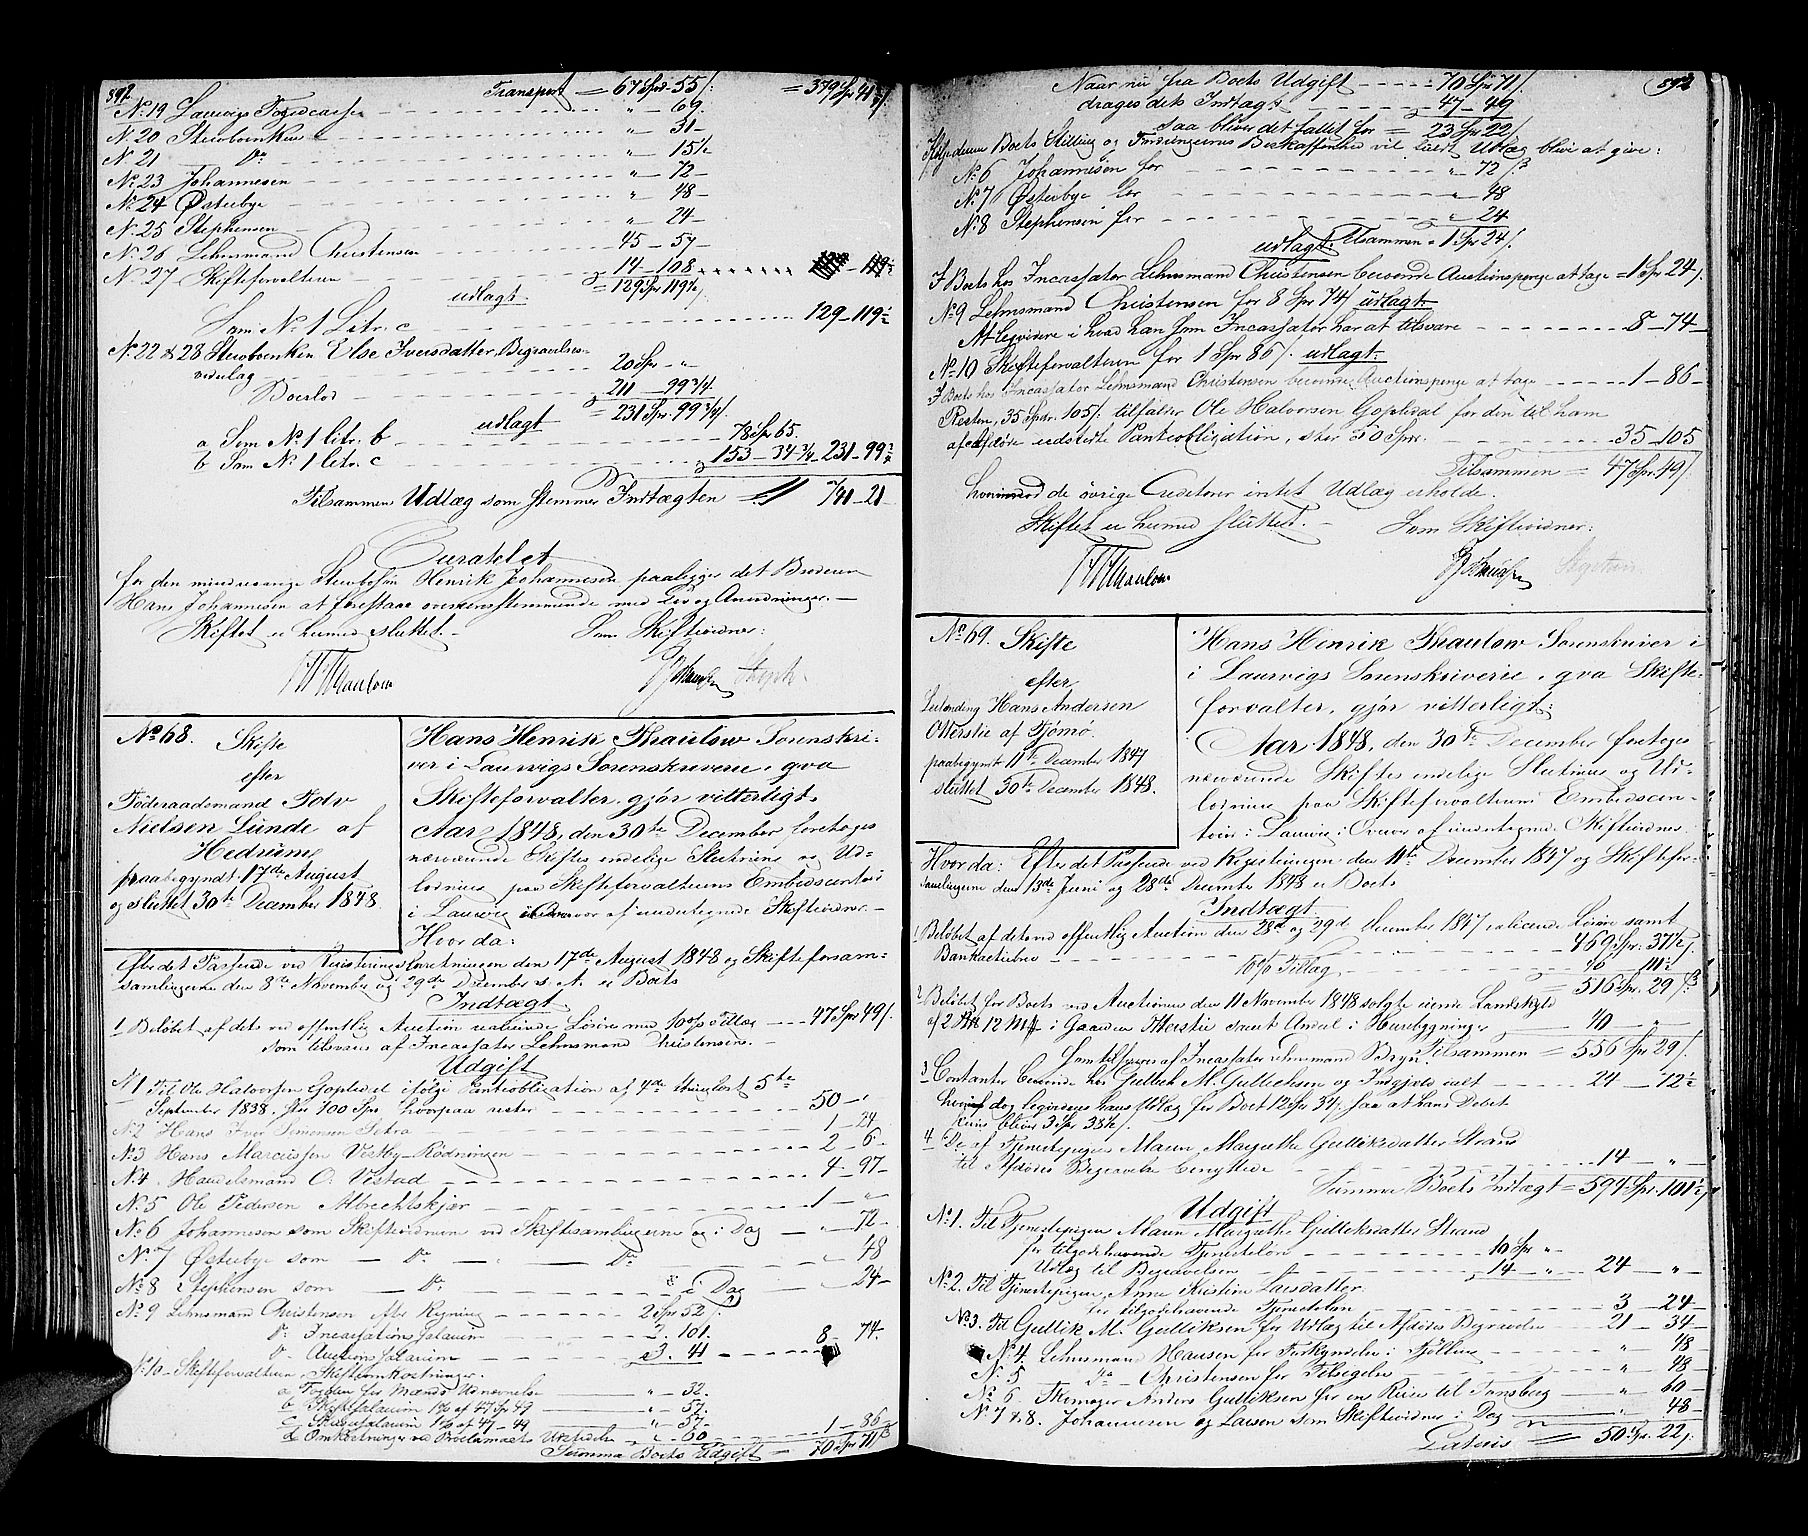 892
Transport = 67 Spr 55 /: = 379 Spr 41
No 19 Laurvigs Fogedcasse " 69
No 20 Stervboenken " 31
No 21 Do " 15½
No 23 Johannesen " 72
No 24 Østerbye " 48
No 25 Stephensen " 24
No 26 Lehnsmand Christensen 45 57
No 27 Skifteforvalteren 14 108
udlagt = 129 Spr 119½
Som No 1 Litr. c 129 119½
No 22 & 28 Stervboenken Else Iversdatter, Begravelses-
vederlag 20 Spr "
Boeslod 211 99¾
udlagt = 231 Spr 99¾/:
a Som No 1 litr. b 78 Spr 65.
b Som No 1 litr. c 153 34¾ 231 99¾
Tilsammen Udlæg som stemmer Indtægten 741 21
Curatelet
for den mindreaarige Stervbosøn Henrik Johannesen paalegges det Broderen
Hans Johannesen at forestaae overeensstemmende med Lov og Anordninger.
Skiftet er hermed sluttet. Som Skiftevidner:
Thaulow
No 68. Skifte
efter
Føderaadsmand Edv
Nielsen Lunde af
Hedrum
paabegyndt 17de August
og sluttet 30te December 1848.
Hans Henrik Thaulow Sorenskri-
ver i Laurvigs Sorenskriverie, qva
Skifteforvalter, gjør vitterligt.
Aar 1848, den 30te December foretoges
nærværende Skiftes endelige Slutning og Ud-
lodning paa Skifteforvalterens Embedscontoir
i Laurvig i Overvær af undertegnede Skiftevidner.
Hvorda:
Efter det Passerede ved Registreringsforretningen den 17de August 1848 og Skifteforsam-
samlingerne den 8de November og 29de December s. A. er Boets
Indtægt
1 Beløbet af dets ved offentlig Auction realiserede Løsøre med 10 o/o Tillæg 47 Spr 49/:
som tilsvares af Incassator Lehnsmand Christensen.
Udgift
No 1 Til Ole Halvorsen Gopledal ifølge Pantobligation af 4de thinglæst 5te
September 1838, stor 100 Spr, hvorpaa rester 50 "
No 2 Hans Iver Simensen Petra 1 24
No 3 Hans Marcussen Verby-Rødningen 2 6
No 4 Handelsmand O. Vestad 4 97
No 5 Ole Pedersen Albrechtskjær 1 "
No 6 Johannesen som Skiftevidne ved Skiftesamlingerne og i Dag " 72
No 7 Østerbye som Do Do " 48
No 8 Stephensen som Do i Dag " 24
No 9 Lehnsmand Christensen efter Regning 2 Spr 52/:
Do Incassations salarium 2. 101.
Do Auctions salarium 3. 41 8 74.
No 10 Skifteforvalteren, Skifteomkostninger.
a Fogden for Mænds Udnævnelse " 32.
b Skiftesalarium 1% af 47 Spr 49 " 57.
c Skiftesalarium 1% af 47 49 " 57
d Omkostninger ved Proclamaets Udstedelse " 60 1 86
Summa Boets Udgift = 70 Spr 71 ß
892
Naar nu fra Boets Udgift 70 Spr 71/:
drages dets Indtægt 47 49
saa bliver det fallit for = 23 Spr 22/:
Ifølge denne Boets Stilling og Fordringernes Beskaffenhed vil sært Udlæg blive at give:
No 6 Johannesen for " 72 ß
No 7 Østerbye for " 48
No 8 Stephensen for " 24
udlagt: Tilsammen = 1 Spr 24/:
I Boets hos Incassator Lehnsmand Christensen beroende Auctionspenge at tage = 1 Spr 24/:
No 9 Lehnsmand Christensen for 8 Spr 74/ udlagt:
At liqvidere i hvad han som Incassator har at tilsvare 8 74
No 10 Skifteforvalteren for 1 Spr 86/: udlagt:
I Boets hos Incassator Lehnsmand Christensen beroende Auctionspenge at tage 1 86
Resten, 35 Spdr. 105/: tilfalder Ole Halvorsen Gopledal for den til ham
af Afdøde udstedte Pantobligation, stor 50 Spr. 35 105
Tilsammen = 47 Spr 49/:
hvorimod de øvrige Creditorer intet Udlæg erholde.
Skiftet er hermed sluttet. Som Skiftevidner:
Thaulow
No 69. Skifte
efter
Leilænding Hans Andersen
Otterstie af Tjømø.
paabegyndt 11te December 1847
sluttet 30te December 1848.
Hans Henrik Thaulow Sorenskriver i
i Laurvigs Sorenskriverie, qva Skifte-
forvalter, gjør vitterligt:
Aar 1848, den 30te December foretoges
nærværende Skiftes endelige Slutning og Ud-
lodning paa Skifteforvalterens Embedscon-
toir i Laurvig i Overvær af undertegnede Skiftevidner.
Hvorda: Efter det Passerede ved Registreringen den 11te December 1847 og Skiftefor-
samlingerne den 13de Juni og 28de December 1848 er Boets
Indtægt
1 Beløbet af dets ved offentlig Auction den 28de og 29de December 1847 realiserede Løsøre samt
Bankactiebrev 469 Spr. 37½/:
10% Tillæg 46 111½
516 Spr. 29 ß
2 Beløbet for Boets ved Auctionen den 11 November 1848 solgte eiende Landskyld
af 2 12 Mk i Gaarden Otterstie samt Andel i Huusbygninger 40 "
som tilsvares af Incassator Lehnsmand Bryn. Tilsammen = 556 Spr 29/:
3 Contanter beroende hos Gullich M. Gullichsen og Indgjeld ialt 24 72½
hvoraf dog liqvideres hans Udlæg for Boet 12 Spr 34/. saa at hans Debet
kuns bliver 3 Spr 38½/.
4 Do af Tjenestepigen Maren Margrethe Gulliksdatter Strand
til Afdødes Begravelse benyttede 14 "
Summa Boets Indtægt = 594 Spr. 101½/:
Udgift
No 1. Til Tjenestepigen Maren Margrethe Gulliksdatter Strand
for tilgodehavende Tjenesteløn 10 Spr "
Udlæg til Begravelsen 14 " 24 "
No 2. Til Tjenestepigen Anne Kirstine Larsdatter
for tilgodehavende Tjenesteløn 3 24
No 3. Til Gullik M. Gulliksen for Udlæg til Afdødes Begravelse 21 34
No 4. Lehnsmand Hansen for Forkyndelse i Tjølling " 48
No 5 Do Christensen for Tilsigelse " 48
No 6 Skrinager Anders Gulliksen for en Reise til Tønsberg " 60
No 7 & 8. Johannesen og Larsen som Skiftevidner i Dag " 48
Lateris = 50 Spr. 22/: